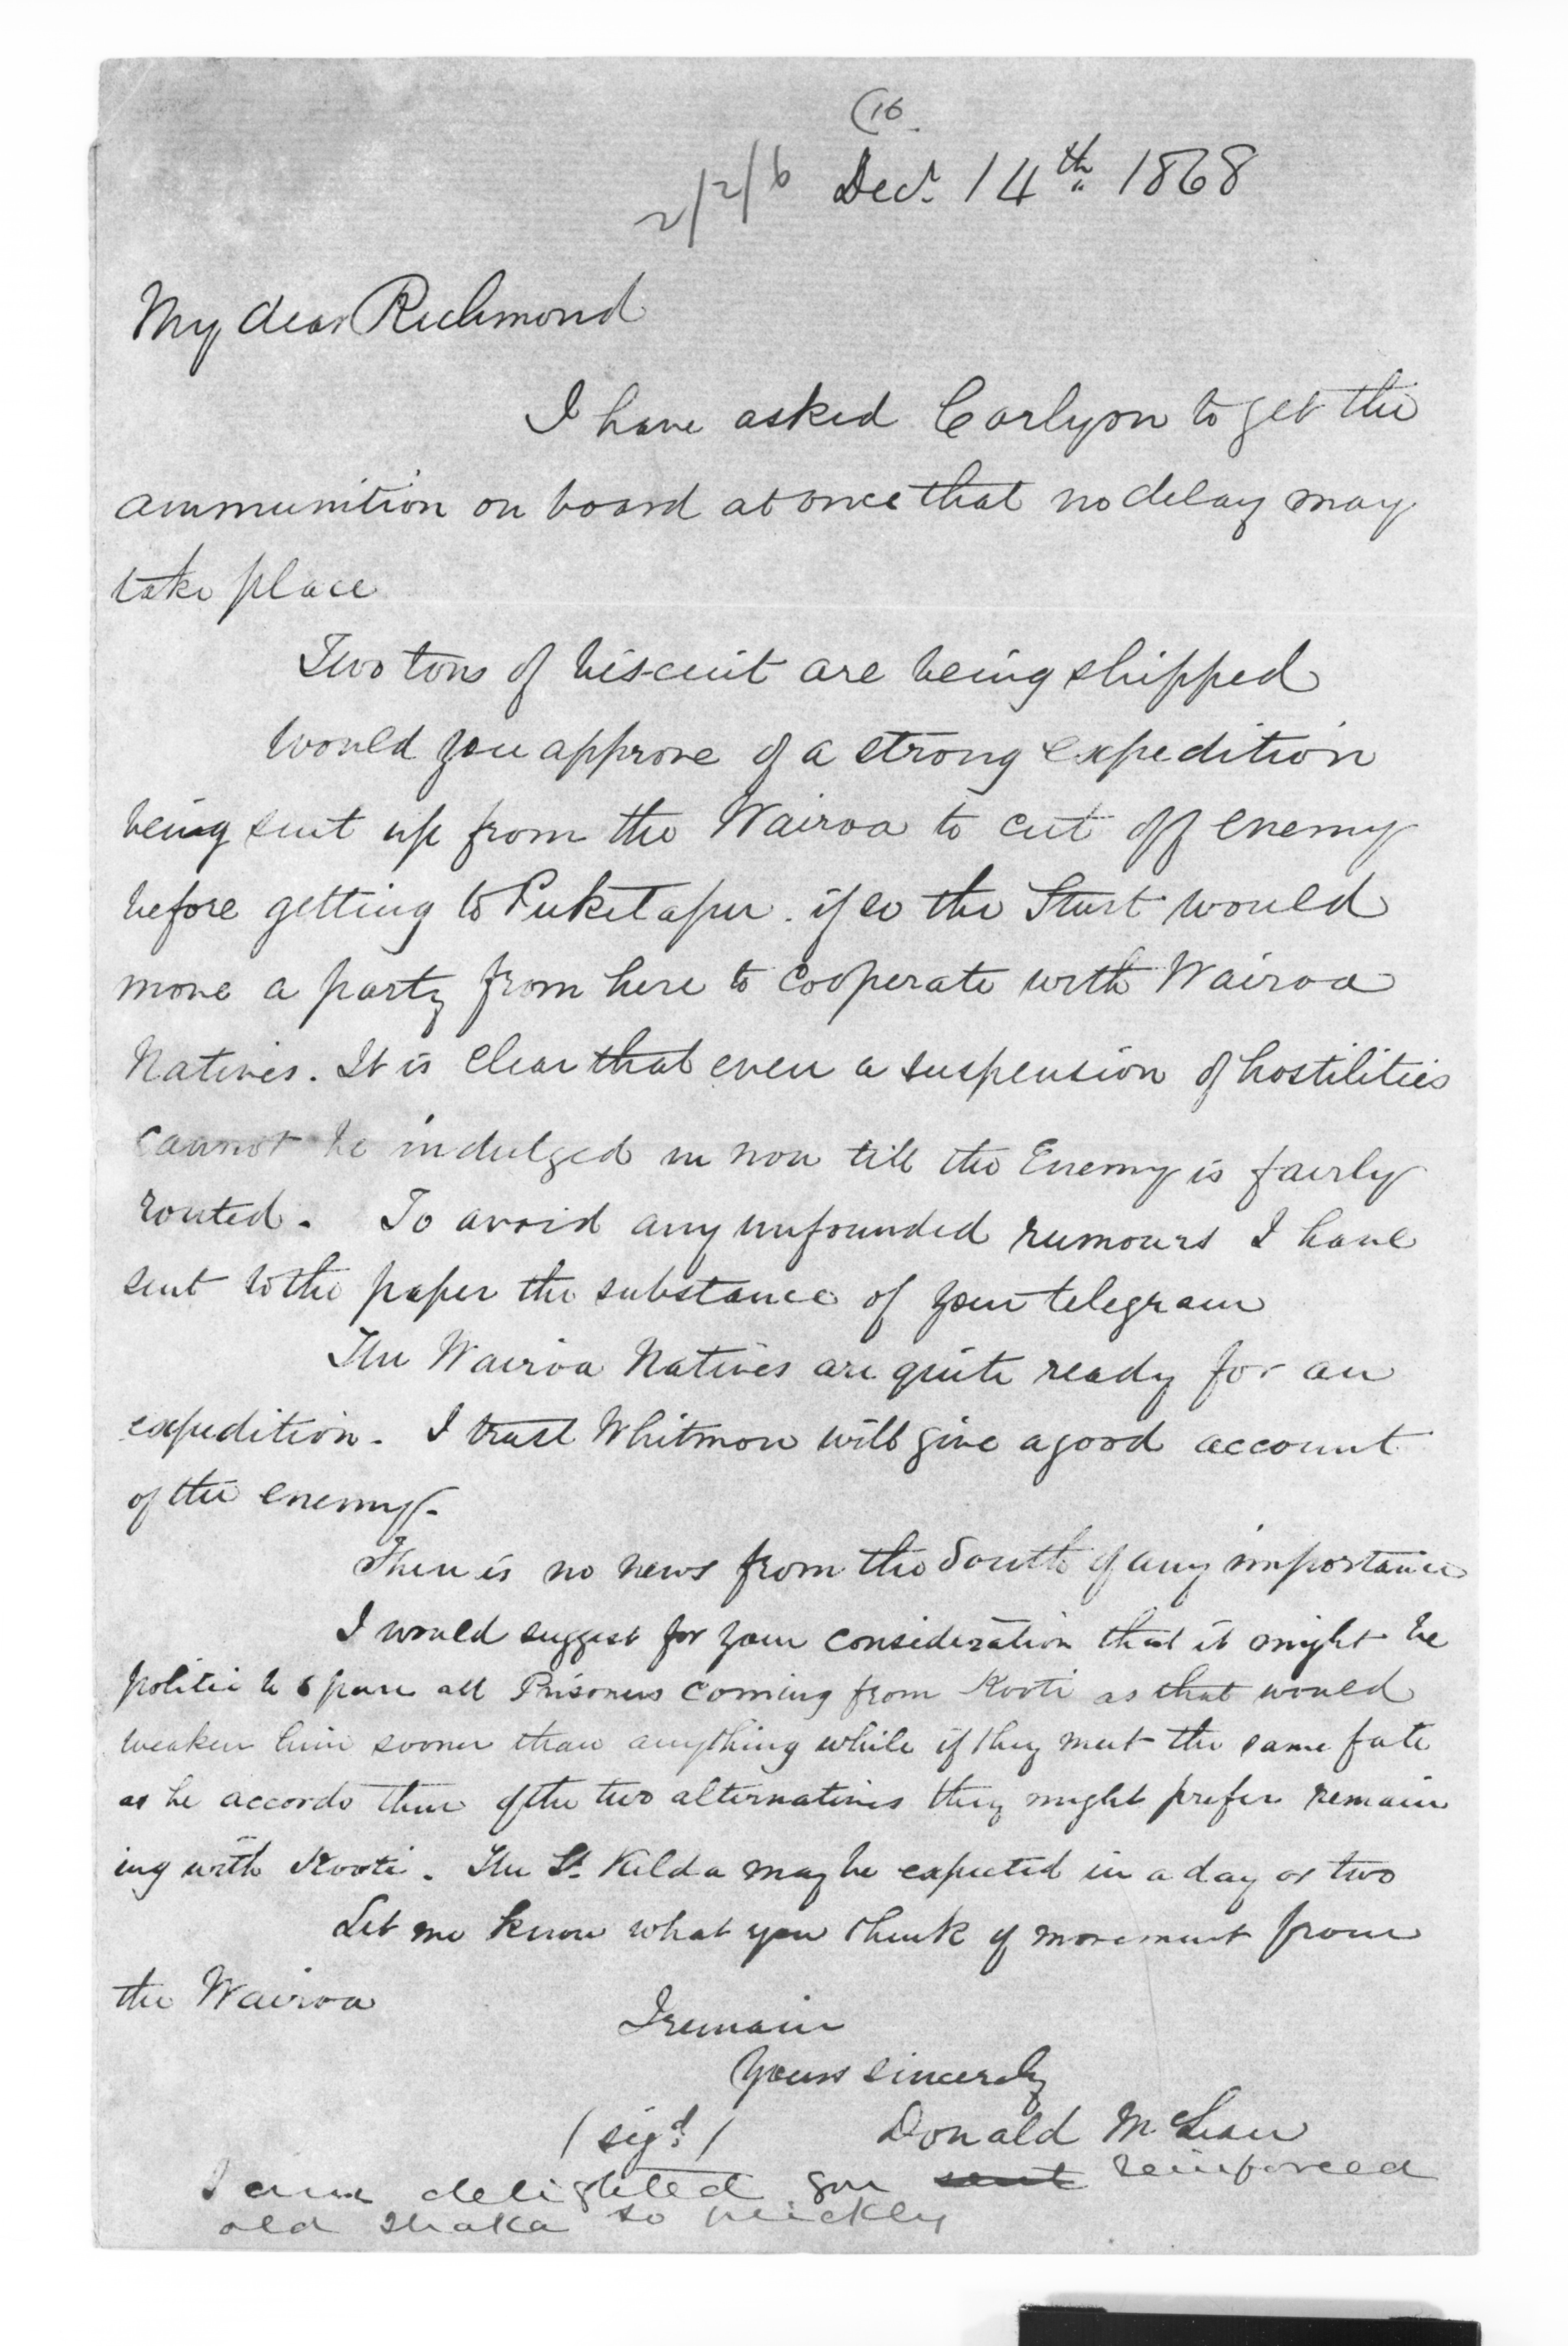 (16.
2/2/6 Decr. 14th 1868
My dear Richmond
I have asked Carlyon to get the
ammunition on board at once that no delay may
take place
Two tons of biscuit are being shipped
Would you approve of a strong expedition
being sent up from the Wairoa to cut off enemy
before getting to Puketapu. if so the Sturt would
move a party from here to cooperate with Wairoa
Natives. It is clear that even a suspension of hostilities
cannot be indulged in now till the Enemy is fairly
routed. To avoid any unfounded rumours I have
sent to the paper the substance of your telegram
The Wairoa Natives are quite ready for an
expedition. I trust Whitmore will give a good account
of the enemy.
There is no news from the South of any importance
I would suggest for your consideration that it might be
politic to spare all Prisoners coming from Kooti as that would
weaken him sooner than anything while if they meet the same fate
as he accords them of the two alternatives they might prefer remain
ing with Kooti. The St. Kilda may be expected in a day or two
Let me know what you think of movement from
the Wairoa
I remain
Yours sincerely
(sigd.) Donald McLean
I am delighted you sent reinforced
old so quickly